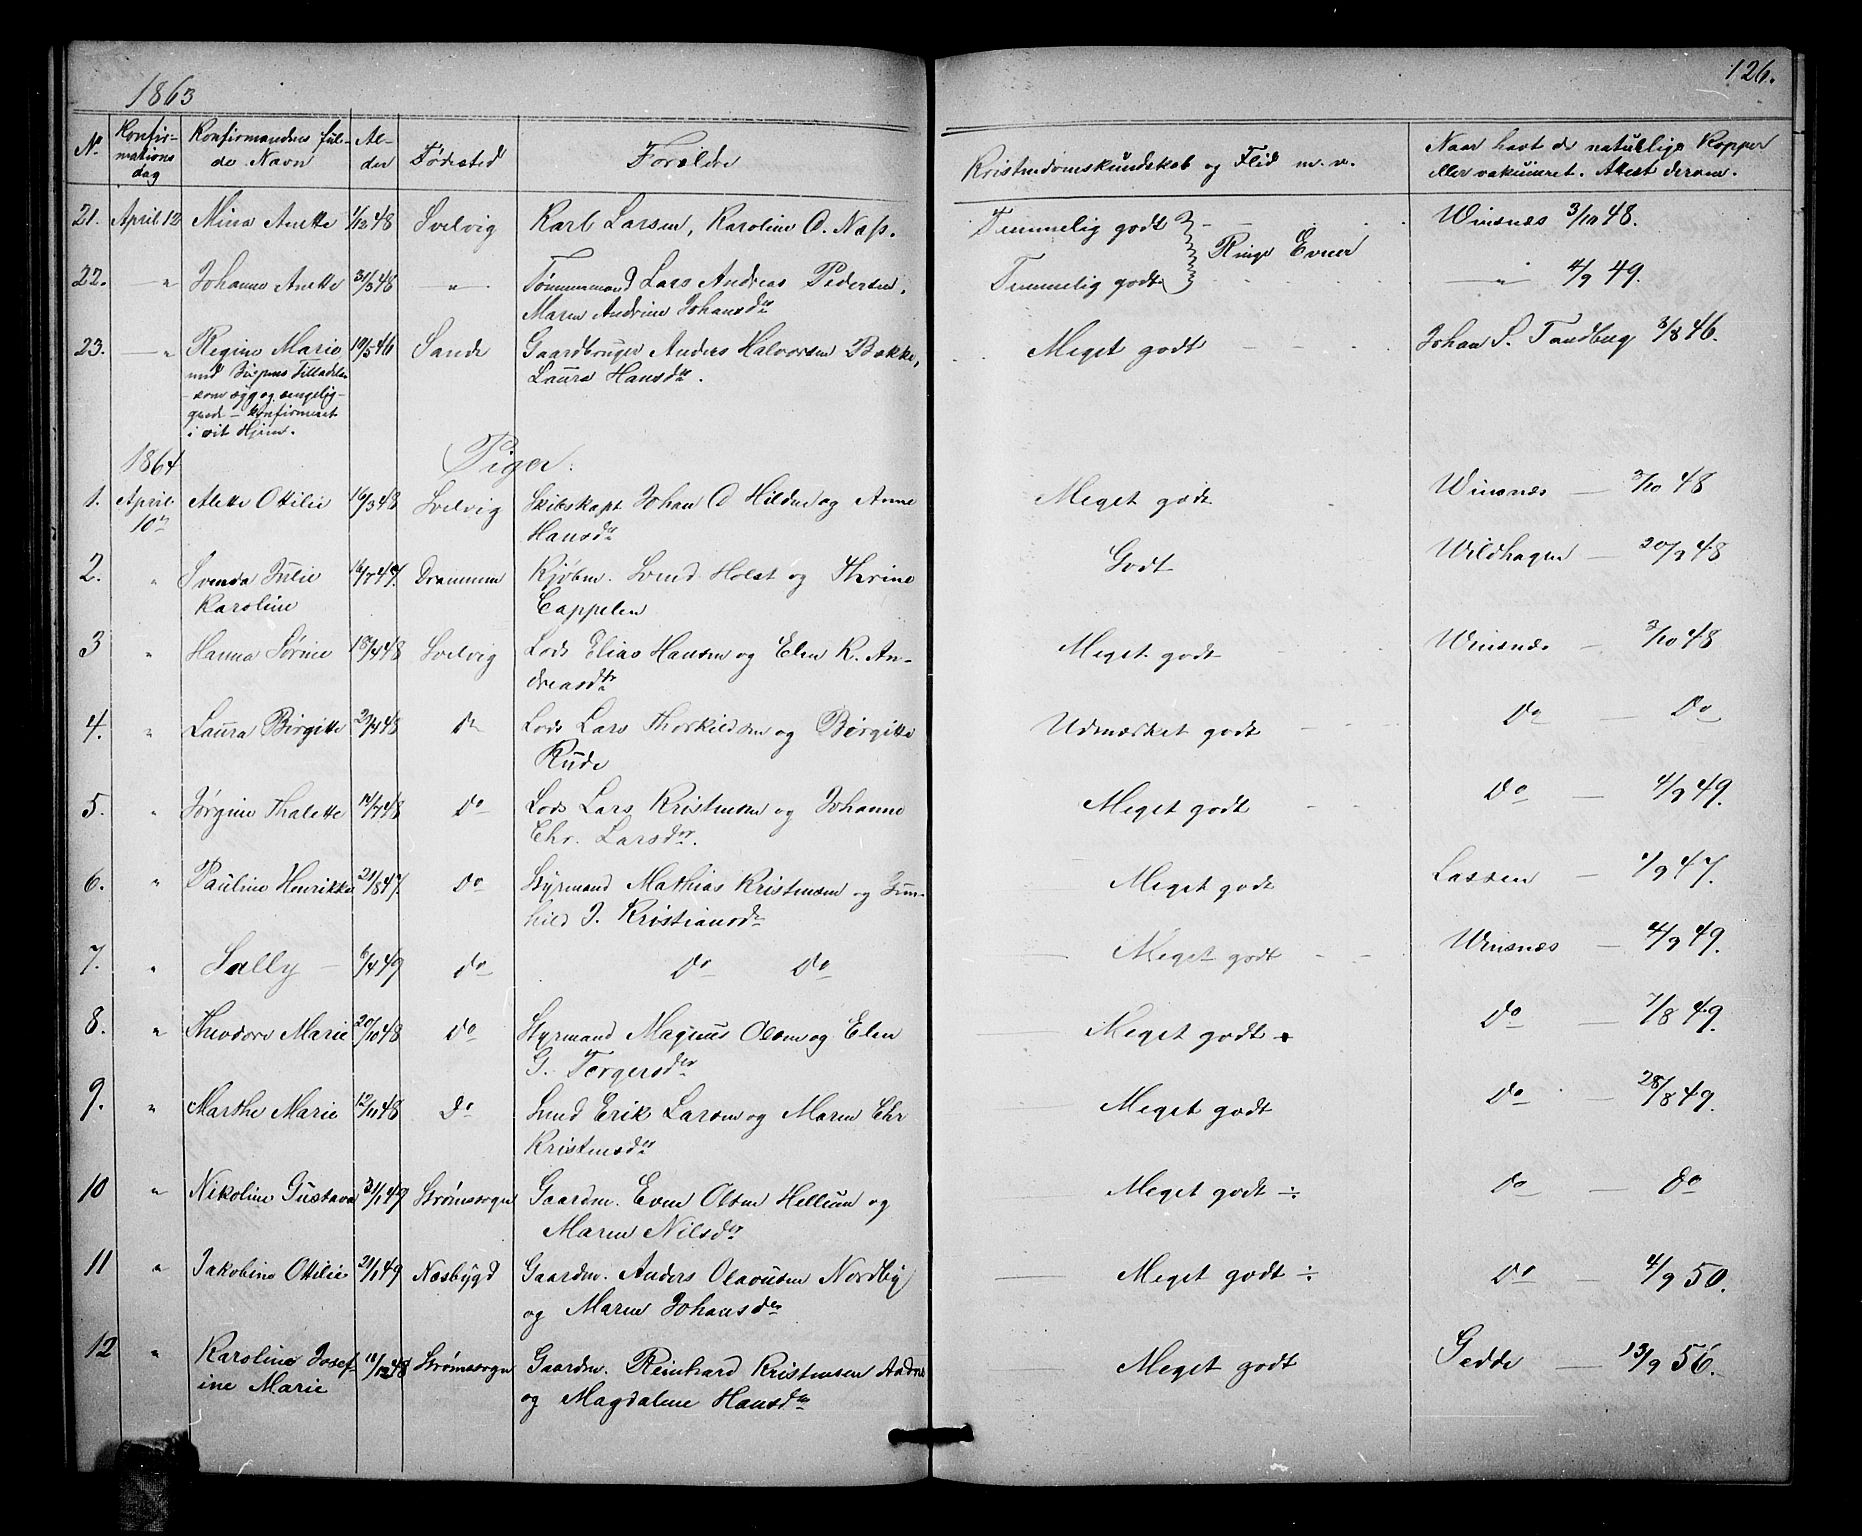 1863
126.
No. Konfirmations dag Konfirmandens fulde Navn Alder Fødested Forældre Kristendomskundskab og Flid m. v. Naar havt de naturlige Kopper eller vakcineret. Attest derom.
21. April 12 Mina Anette 1/12 48 Svelvig Karl Larsen, Karoline O. Næss. Temmelig godt Ringe Evner Winsnæs 3/10 48.
22. — " Johanne Anette 31/3 48 — " — Tømmermand Lars Andreas Pedersen, Temmelig godt — " — 4/9 49.
Maren Andrine Johansdr
23. — " Regine Marie 19/5 46 Sande Gaardbruger Anders Halvorsen Bakke, Meget godt Johan S. Tandberg 3/8 46.
med Bispens Tilladelse Laura Hansdr.
som syg og sengeliggende
- konfirmeret
i sit Hjem.
1864 Piger.
1. April 10de Alette Ottilie 16/3 48 Svelvig Skibskapt Johan O Hilden og Anne Meget godt Winsnæs — 3/10 48
Hansdr
2. " Svenda Julie 16/7 47. Drammen Kjøbm. Svend Holst og Thrine Godt Wildhagen — 20/9 48
Karoline Cappelen
3 " Hanna Sørine 18/4 48 Svelvig Lods Elias Hansen og Elen K. An- Meget godt Winsnæs — 3/10 48
dreasdtr
4. " Laura Birgitte 2/4 48 do Lods Lars Thorkildsen og Børgitte Udmærket godt do — do
Rude
5. " Jørgine Thalette 12/7 48 do Lods Lars Kristensen og Johanne Meget godt do — 4/9 49.
Chr. Larsdr.
6. " Pauline Henrikke 21/8 47. do Styrmand Mathias Kristensen og Gun- Meget godt Lassen — 1/9 47.
hild J. Kristiansdr
7. " Sally — 6/4 49 do do do Meget godt Winsnæs — 4/9 49.
8. " Theodora Marie 20/10 48 do Styrmand Magnus Olsen og Elen Meget godt do — 7/8 49.
G. Torgersdr
9. " Marthe Marie 12/11 48 do Smed Erik Larsen og Maren Chr Meget godt do — 28/8 49.
Kristensdr
10 " Nikoline Gustava 31/1 49 Strømssogn Gaardm. Even Olsen Hellum og Meget godt ÷ do — do
Maren Nilsdr
11 " Jakobine Ottilie 21/1 49 Næsbygd Gaardm. Anders Olavusen Nordby Meget godt ÷ do — 4/9 50.
og Maren Johansdr
12 " Karoline Josef- 18/12 48 Strømssogn Gaardm. Reinhard Kristensen Meget godt Gedde — 13/9 56.
ine Marie og Magdalene Hansdr